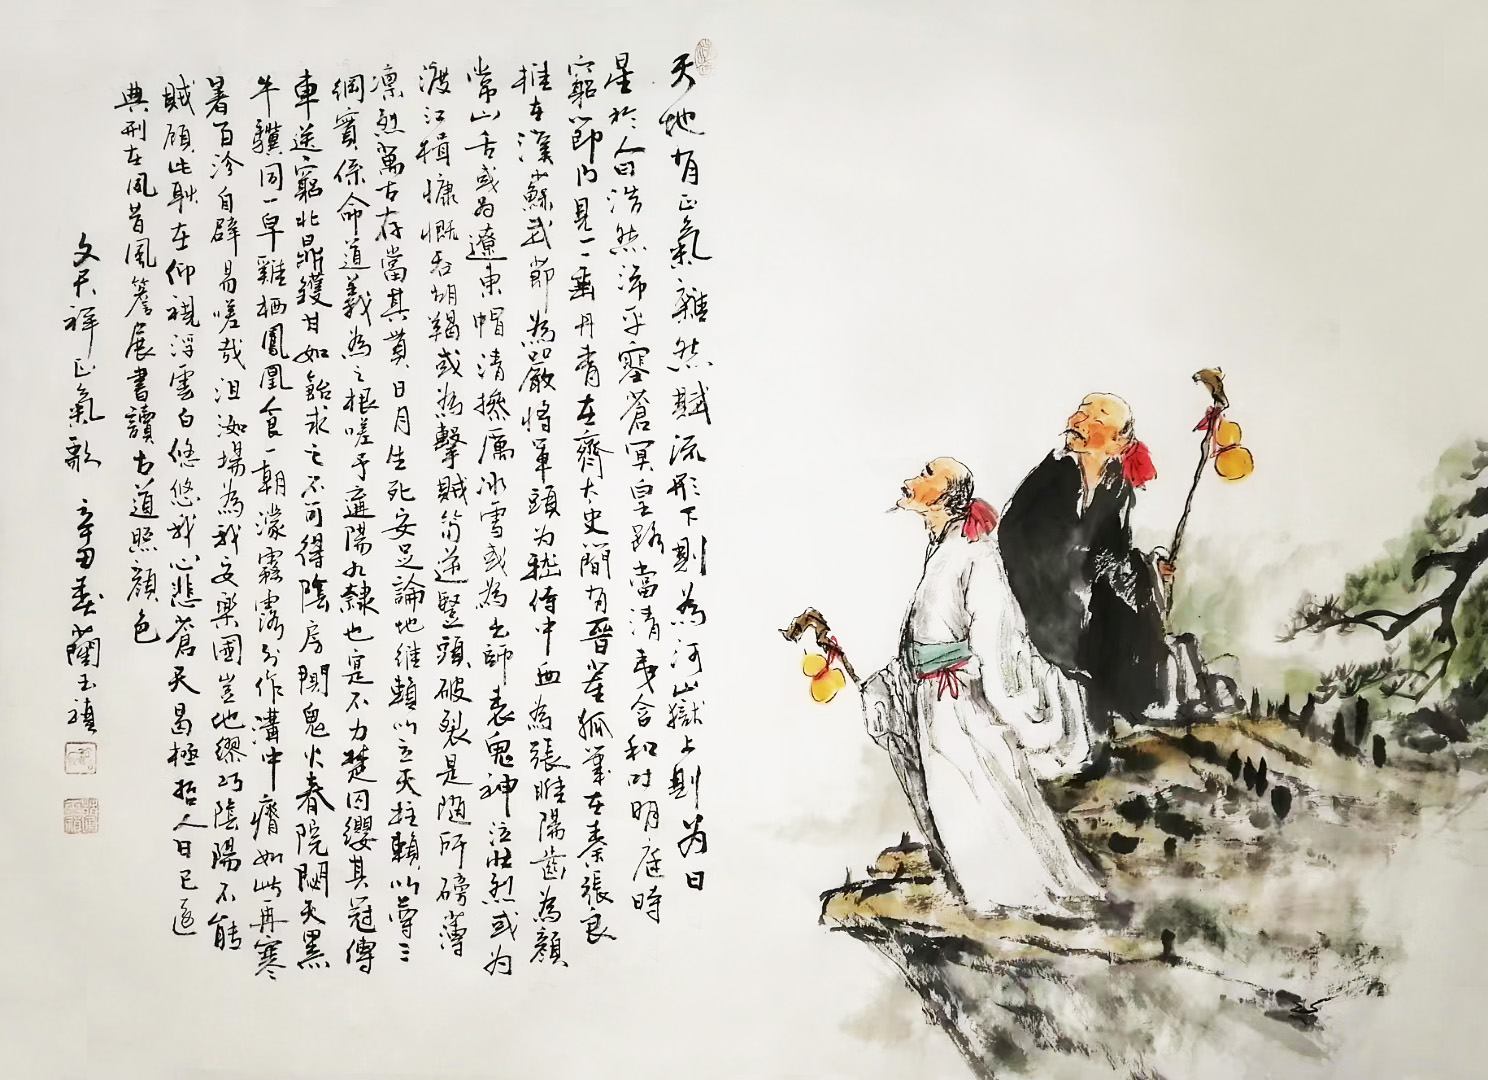 天地有正氣雜然賦流形下則為河嶽上則为日
星於人曰浩然沛乎塞蒼冥皇路當清夷含和吐明庭時
窮節乃見一一垂丹青在齊太史簡有晉董狐筆在秦張良
椎在漢蘇武節為嚴將軍頭为嵇侍中血為張睢陽齒為顏
常山舌或为遼東帽清操厲冰雪或為出師表鬼神泣壯烈或为
渡江楫慷慨吞胡羯或為擊賊笏逆豎頭破裂是随所磅薄
凛烈萬古存當其貫日月生死安足論地維賴以立天柱賴以尊三
綱實係命道義為之根嗟予遘陽九隸也寔不力楚囚纓其冠傳
車送窮北鼎鑊甘如飴求之不可得陰房闃鬼火春院閟天黑
牛驥同一皁雞栖鳳凰食一朝濛霧露分作溝中瘠如此再寒
暑百沴自辟易嗟哉沮洳場為我安樂國豈地繆巧陰陽不能
賊顾此耿在仰視浮雲白悠悠我心悲蒼天曷極哲人日已遠
典刑在夙昔風簷展書讀古道照顏色
文天祥正氣歌 辛丑春蘭玉禎